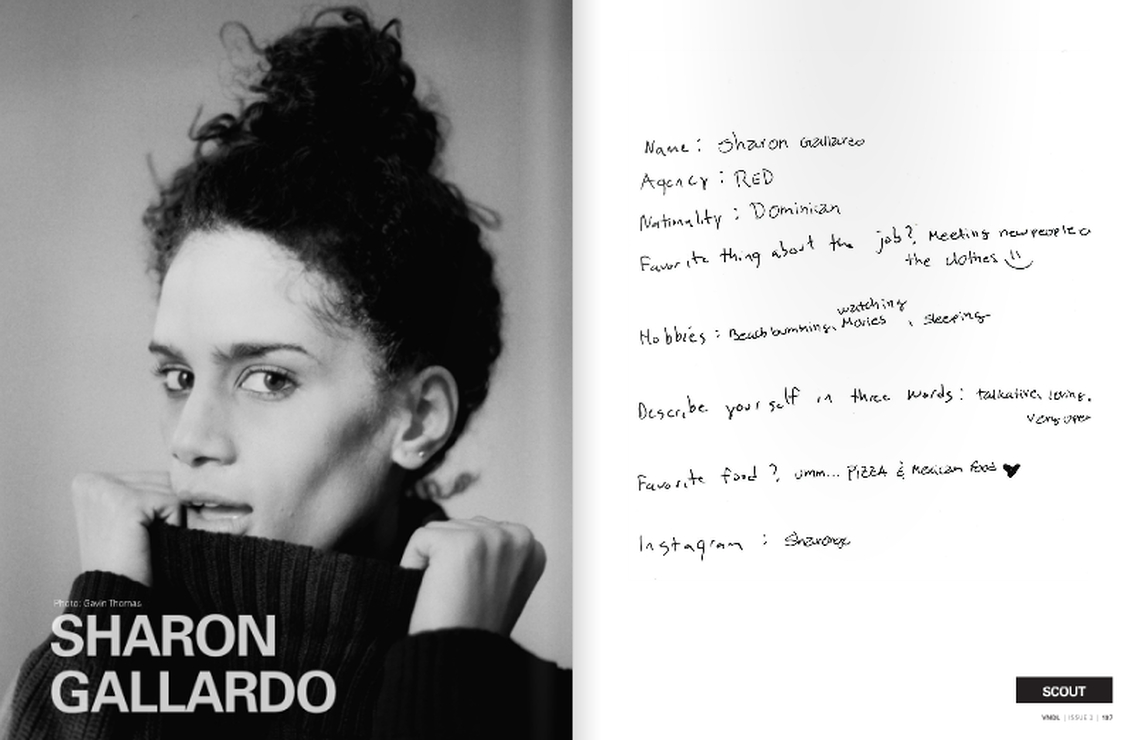 Photo: Gavin Thomas
SHARON
GALLARDO
Name : Sharon Gallardo
Agency : RED
Nationality : Dominican
Favorite thing about the job? Meeting new people &
the clothes
Hobbies : Beach bumming, watching Movies , sleeping
Describe yourself in three words : talkative, loving,
very open
Favorite food ? umm... PIZZA & Mexican food ♥
Instagram :
SCOUT
VNDL | ISSUE 2 | 107